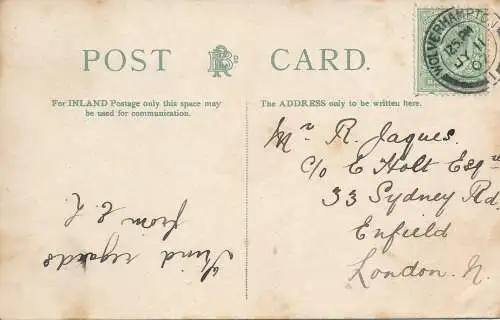 POST CARD.
For INLAND Postage only this space may
be used for communication.
The ADDRESS only to be written here.
WOLVERHAMPTON
Kind regards
from E. L.
Mr R. Jaques.
C/o E Holt Esqr
33 Sydney Rd.
Enfield
London. N.